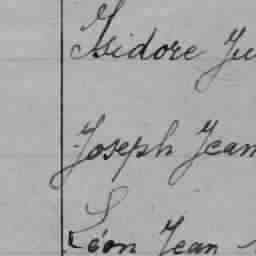 Isidore Ju
Joseph Jean
Léon Jean